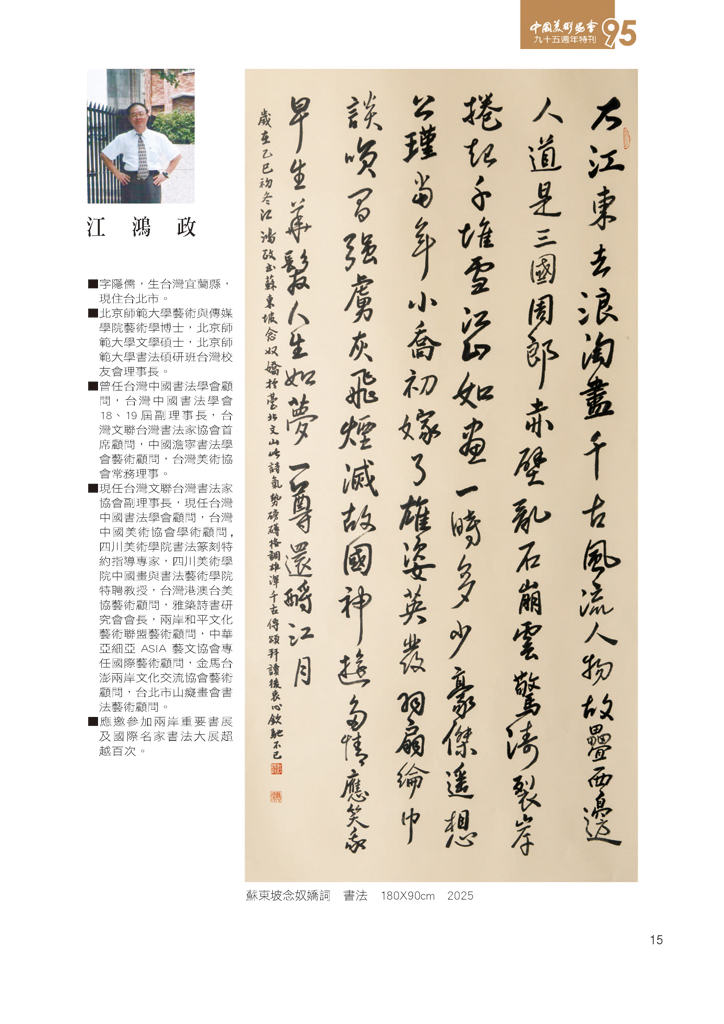 中國美術協會
九十五週年特刊
95
江鴻政
■字隱儒，生台灣宜蘭縣，
現住台北市。
■北京師範大學藝術與傳媒
學院藝術學博士，北京師
範大學文學碩士，北京師
範大學書法碩研班台灣校
友會理事長。
■曾任台灣中國書法學會顧
問，台灣中國書法學會
18、19屆副理事長，台
灣文聯台灣書法家協會首
席顧問，中國澹寧書法學
會藝術顧問，台灣美術協
會常務理事。
■現任台灣文聯台灣書法家
協會副理事長，現任台灣
中國書法學會顧問，台灣
中國美術協會學術顧問，
四川美術學院書法篆刻特
約指導專家，四川美術學
院中國畫與書法藝術學院
特聘教授，台灣港澳台美
協藝術顧問，雅築詩書研
究會會長，兩岸和平文化
藝術聯盟藝術顧問，中華
亞細亞 ASIA 藝文協會專
任國際藝術顧問，金馬台
澎兩岸文化交流協會藝術
顧問，台北市山癡畫會書
法藝術顧問。
■應邀參加兩岸重要書展
及國際名家書法大展超
越百次。
大江東去浪淘盡千古風流人物故壘西邊
人道是三國周郎赤壁亂石崩雲驚濤裂岸
捲起千堆雪江山如畫一時多少豪傑遥想
公瑾當年小喬初嫁了雄姿英發羽扇綸巾
談笑間强虜灰飛煙滅故國神遊多情應笑我
早生華髮人生如夢一尊還酹江月
歲在乙巳初冬江鴻政書蘇東坡念奴嬌於臺北文山此詩氣勢磅礡格調雄渾千古傳頌拜讀後衷心欽馳不已
蘇東坡念奴嬌詞　書法　180X90cm　2025
15